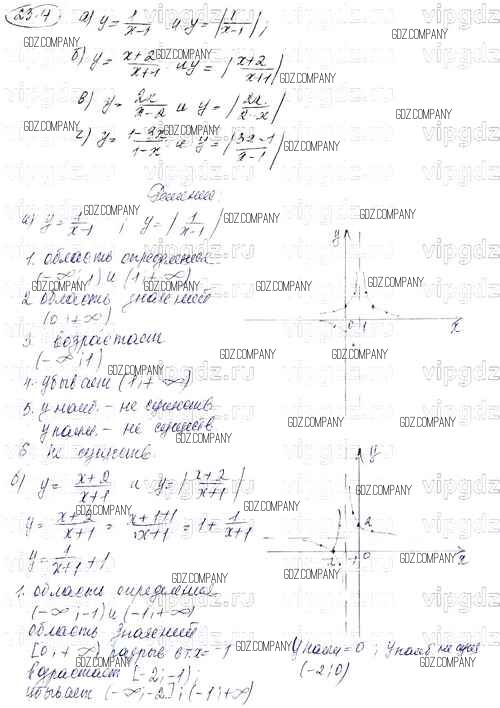 23.4 а) y = 1/(x-1) и y = |1/(x-1)|;
б) y = (x+2)/(x+1) и y = |(x+2)/(x+1)|
в) y = 2x/(x-2) и y = |2x/(2-x)|
г) y = (1-3x)/(1-x) и y = |(3x-1)/(x-1)|
Решение:
а) y = 1/(x-1) ; y = |1/(x-1)|
1. область определения
(-∞; 1) и (1; +∞)
2. область значений
(0; +∞)
3. возрастает
(-∞; 1)
4. убывает (1; +∞)
5. y наиб. - не существ.
y наим. - не существ
6. не существ.
y
0 1
x
б) y = (x+2)/(x+1) и y = |(x+2)/(x+1)|
y = (x+2)/(x+1) = (x+1+1)/(x+1) = 1 + 1/(x+1)
y = 1/(x+1) + 1
y
2
-2 -1 0
x
1. область определения
(-∞; -1) и (-1; +∞)
область значений
[0; +∞) разрыв в т. x = -1 y наим = 0 ; y наиб не сущ
возрастает [-2; -1) ; (-2; 0)
убывает (-∞; -2] ; (-1; +∞)
GDZ.COMPANY
vipgdz.ru